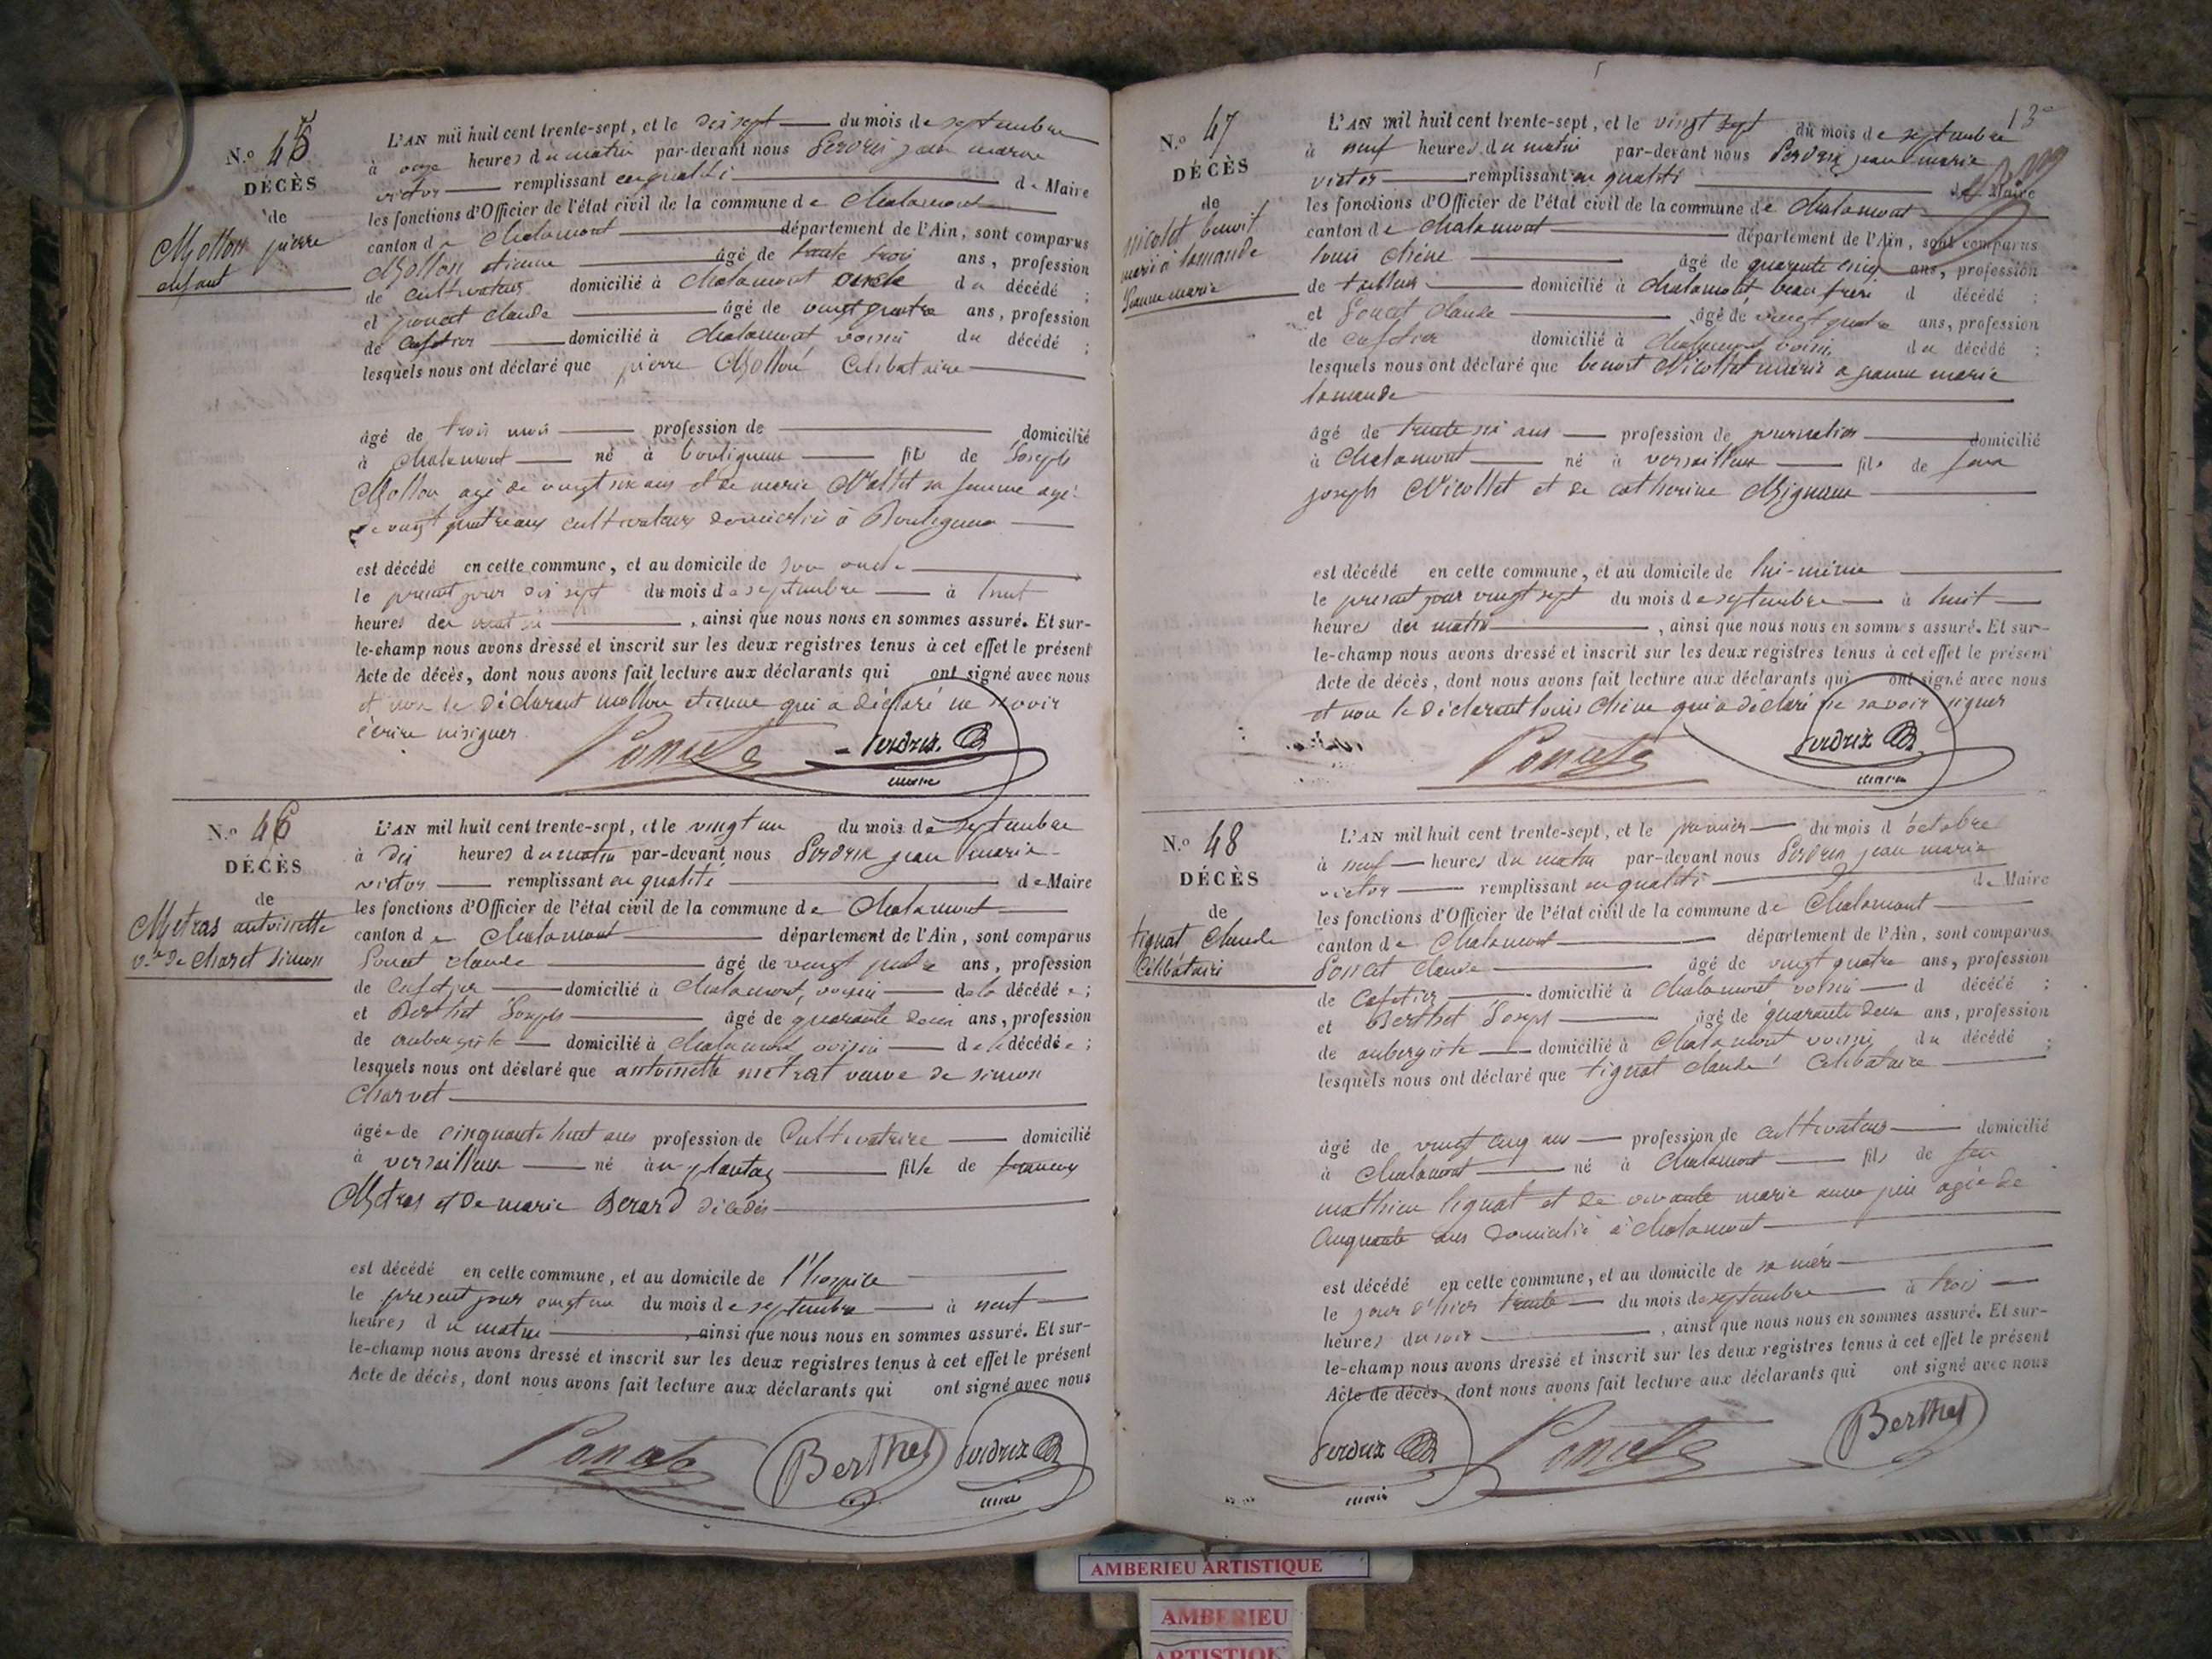 N.o 45
DÉCÈS
de
Mollon pierre
enfant
L'AN mil huit cent trente-sept, et le dix sept du mois de septembre
à onze heures du matin par-devant nous Perdrix jean marie
victor remplissant en qualité de Maire
les fonctions d'Officier de l'état civil de la commune de Chalamont
canton de Chalamont département de l'Ain, sont comparus
Mollon etienne âgé de trente trois ans, profession
de cultivateur domicilié à Chalamont oncle du décédé ;
et poncet claude âgé de vingt quatre ans, profession
de cafetier domicilié à Chalamont voisin du décédé ;
lesquels nous ont déclaré que pierre Mollon Celibataire
âgé de trois mois profession de domicilié
à Chalamont né à bouligneux fils de Joseph
Mollon agé de vingt six ans et de marie sa femme agé
de vingt quatre ans cultivateurs domiciliés à Bouligneux
est décédé en cette commune, et au domicile de son oncle
le present jour dix sept du mois de septembre à huit
heures du matin , ainsi que nous nous en sommes assuré. Et sur-
le-champ nous avons dressé et inscrit sur les deux registres tenus à cet effet le présent
Acte de décès, dont nous avons fait lecture aux déclarants qui ont signé avec nous
et non le déclarant mollon etienne qui a déclaré ne savoir
écrire ni signer
Poncet Perdrix
maire
N.o 46
DÉCÈS
de
Metras antoinette
v.ve de Charet simon
L'AN mil huit cent trente-sept, et le vingt un du mois de septembre
à dix heures du matin par-devant nous Perdrix jean marie
victor remplissant en qualité de Maire
les fonctions d'Officier de l'état civil de la commune de Chalamont
canton de Chalamont département de l'Ain, sont comparus
Poncet claude âgé de vingt quatre ans, profession
de cafetier domicilié à Chalamont, voisin de la décédée ;
et Berthet Joseph âgé de quarante deux ans, profession
de aubergiste domicilié à Chalamont voisin de la décédée ;
lesquels nous ont déclaré que antoinette metrat veuve de simon
Charvet
âgée de cinquante huit ans profession de Cultivatrice domicilié
à versailleux né au plantay fille de francois
Metras et de marie Berard décédés
est décédé en cette commune, et au domicile de l'hospice
le present jour vingt un du mois de septembre à neuf
heures du matin , ainsi que nous nous en sommes assuré. Et sur-
le-champ nous avons dressé et inscrit sur les deux registres tenus à cet effet le présent
Acte de décès, dont nous avons fait lecture aux déclarants qui ont signé avec nous
Poncet Berthet Perdrix
maire
13
N.o 47
DÉCÈS
de
nicolet benoit
marié à lamande
Jeanne marie
L'AN mil huit cent trente-sept, et le vingt sept du mois de septembre
à neuf heures du matin par-devant nous Perdrix jean marie
victor remplissant en qualité de Maire
les fonctions d'Officier de l'état civil de la commune de Chalamont
canton de Chalamont département de l'Ain, sont comparus
louis Chêne âgé de quarante cinq ans, profession
de tailleur domicilié à chalamont, beau frère d décédé ;
et Poncet Claude âgé de vingt quatre ans, profession
de cafetier domicilié à Chalamont voisin du décédé ;
lesquels nous ont déclaré que benoit Nicollet marié a jeanne marie
lamande
âgé de trente six ans profession de journalier domicilié
à Chalamont né à versailleux fils de feu
joseph Nicollet et de catherine Mignam
est décédé en cette commune, et au domicile de lui-même
le present jour vingt sept du mois de septembre à huit
heures du matin , ainsi que nous nous en sommes assuré. Et sur-
le-champ nous avons dressé et inscrit sur les deux registres tenus à cet effet le présent
Acte de décès, dont nous avons fait lecture aux déclarants qui ont signé avec nous
et non le déclarant louis Chêne qui a déclaré ne savoir signer
Poncet Perdrix
maire
N.o 48
DÉCÈS
de
tignat Claude
Célibataire
L'AN mil huit cent trente-sept, et le premier du mois d'octobre
à neuf heures du matin par-devant nous Perdrix jean marie
victor remplissant en qualité de Maire
les fonctions d'Officier de l'état civil de la commune de Chalamont
canton de Chalamont département de l'Ain, sont comparus
Poncet claude âgé de vingt quatre ans, profession
de Cafetier domicilié à Chalamont voisin d décédé ;
et Berthet Joseph âgé de quarante deux ans, profession
de aubergiste domicilié à Chalamont voisin du décédé ;
lesquels nous ont déclaré que tignat claude Célibataire
âgé de vingt cinq ans profession de cultivateur domicilié
à Chalamont né à Chalamont fils de feu
mathieu tignat et de vivante marie anne agée de
Cinquante ans domicilié à Chalamont
est décédé en cette commune, et au domicile de sa mère
le jour d'hier trente du mois de septembre à trois
heures du soir , ainsi que nous nous en sommes assuré. Et sur-
le-champ nous avons dressé et inscrit sur les deux registres tenus à cet effet le présent
Acte de décès, dont nous avons fait lecture aux déclarants qui ont signé avec nous
Perdrix Poncet Berthet
maire
AMBERIEU ARTISTIQUE
AMBERIEU
ARTISTIQUE